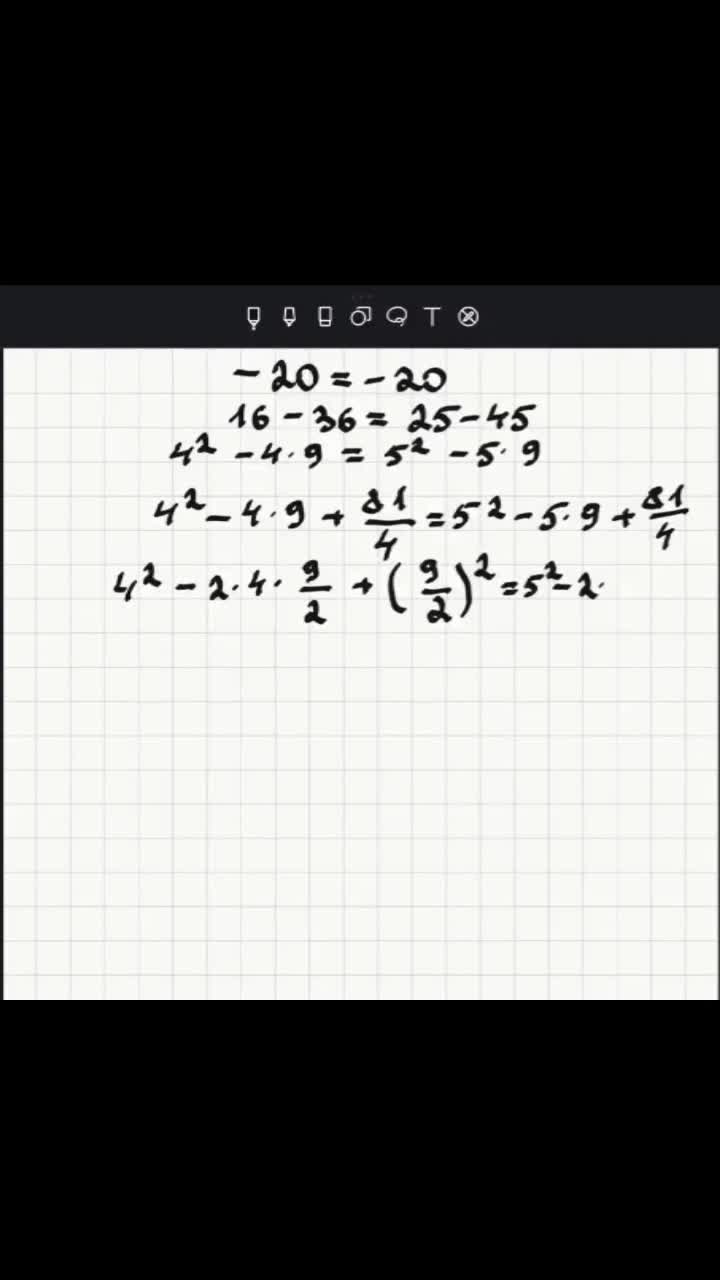 -20 = -20
16 - 36 = 25 - 45
4² - 4·9 = 5² - 5·9
4² - 4·9 + 81/4 = 5² - 5·9 + 81/4
4² - 2·4·9/2 + (9/2)² = 5² - 2·